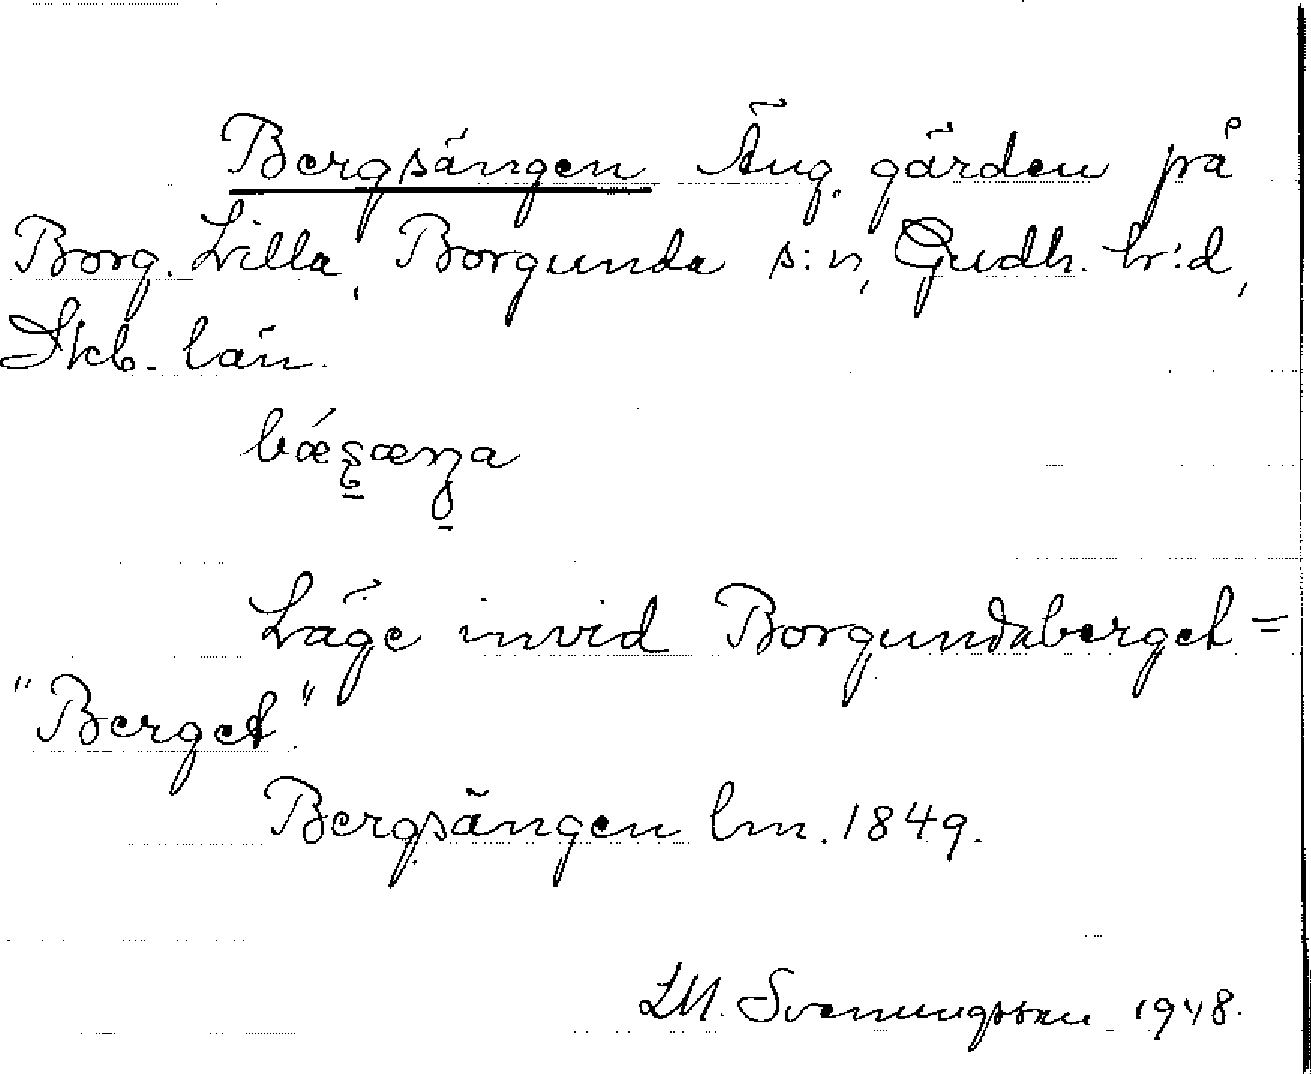 Bergsängen Äng. gärden på
Borg. Lilla, Borgunda s:n, Gudh. hr:d,
Skb. län.
Läge invid Borgundaberget =
"Berget".
Bergsängen lm. 1849.
LM. Svenungsson 1948.